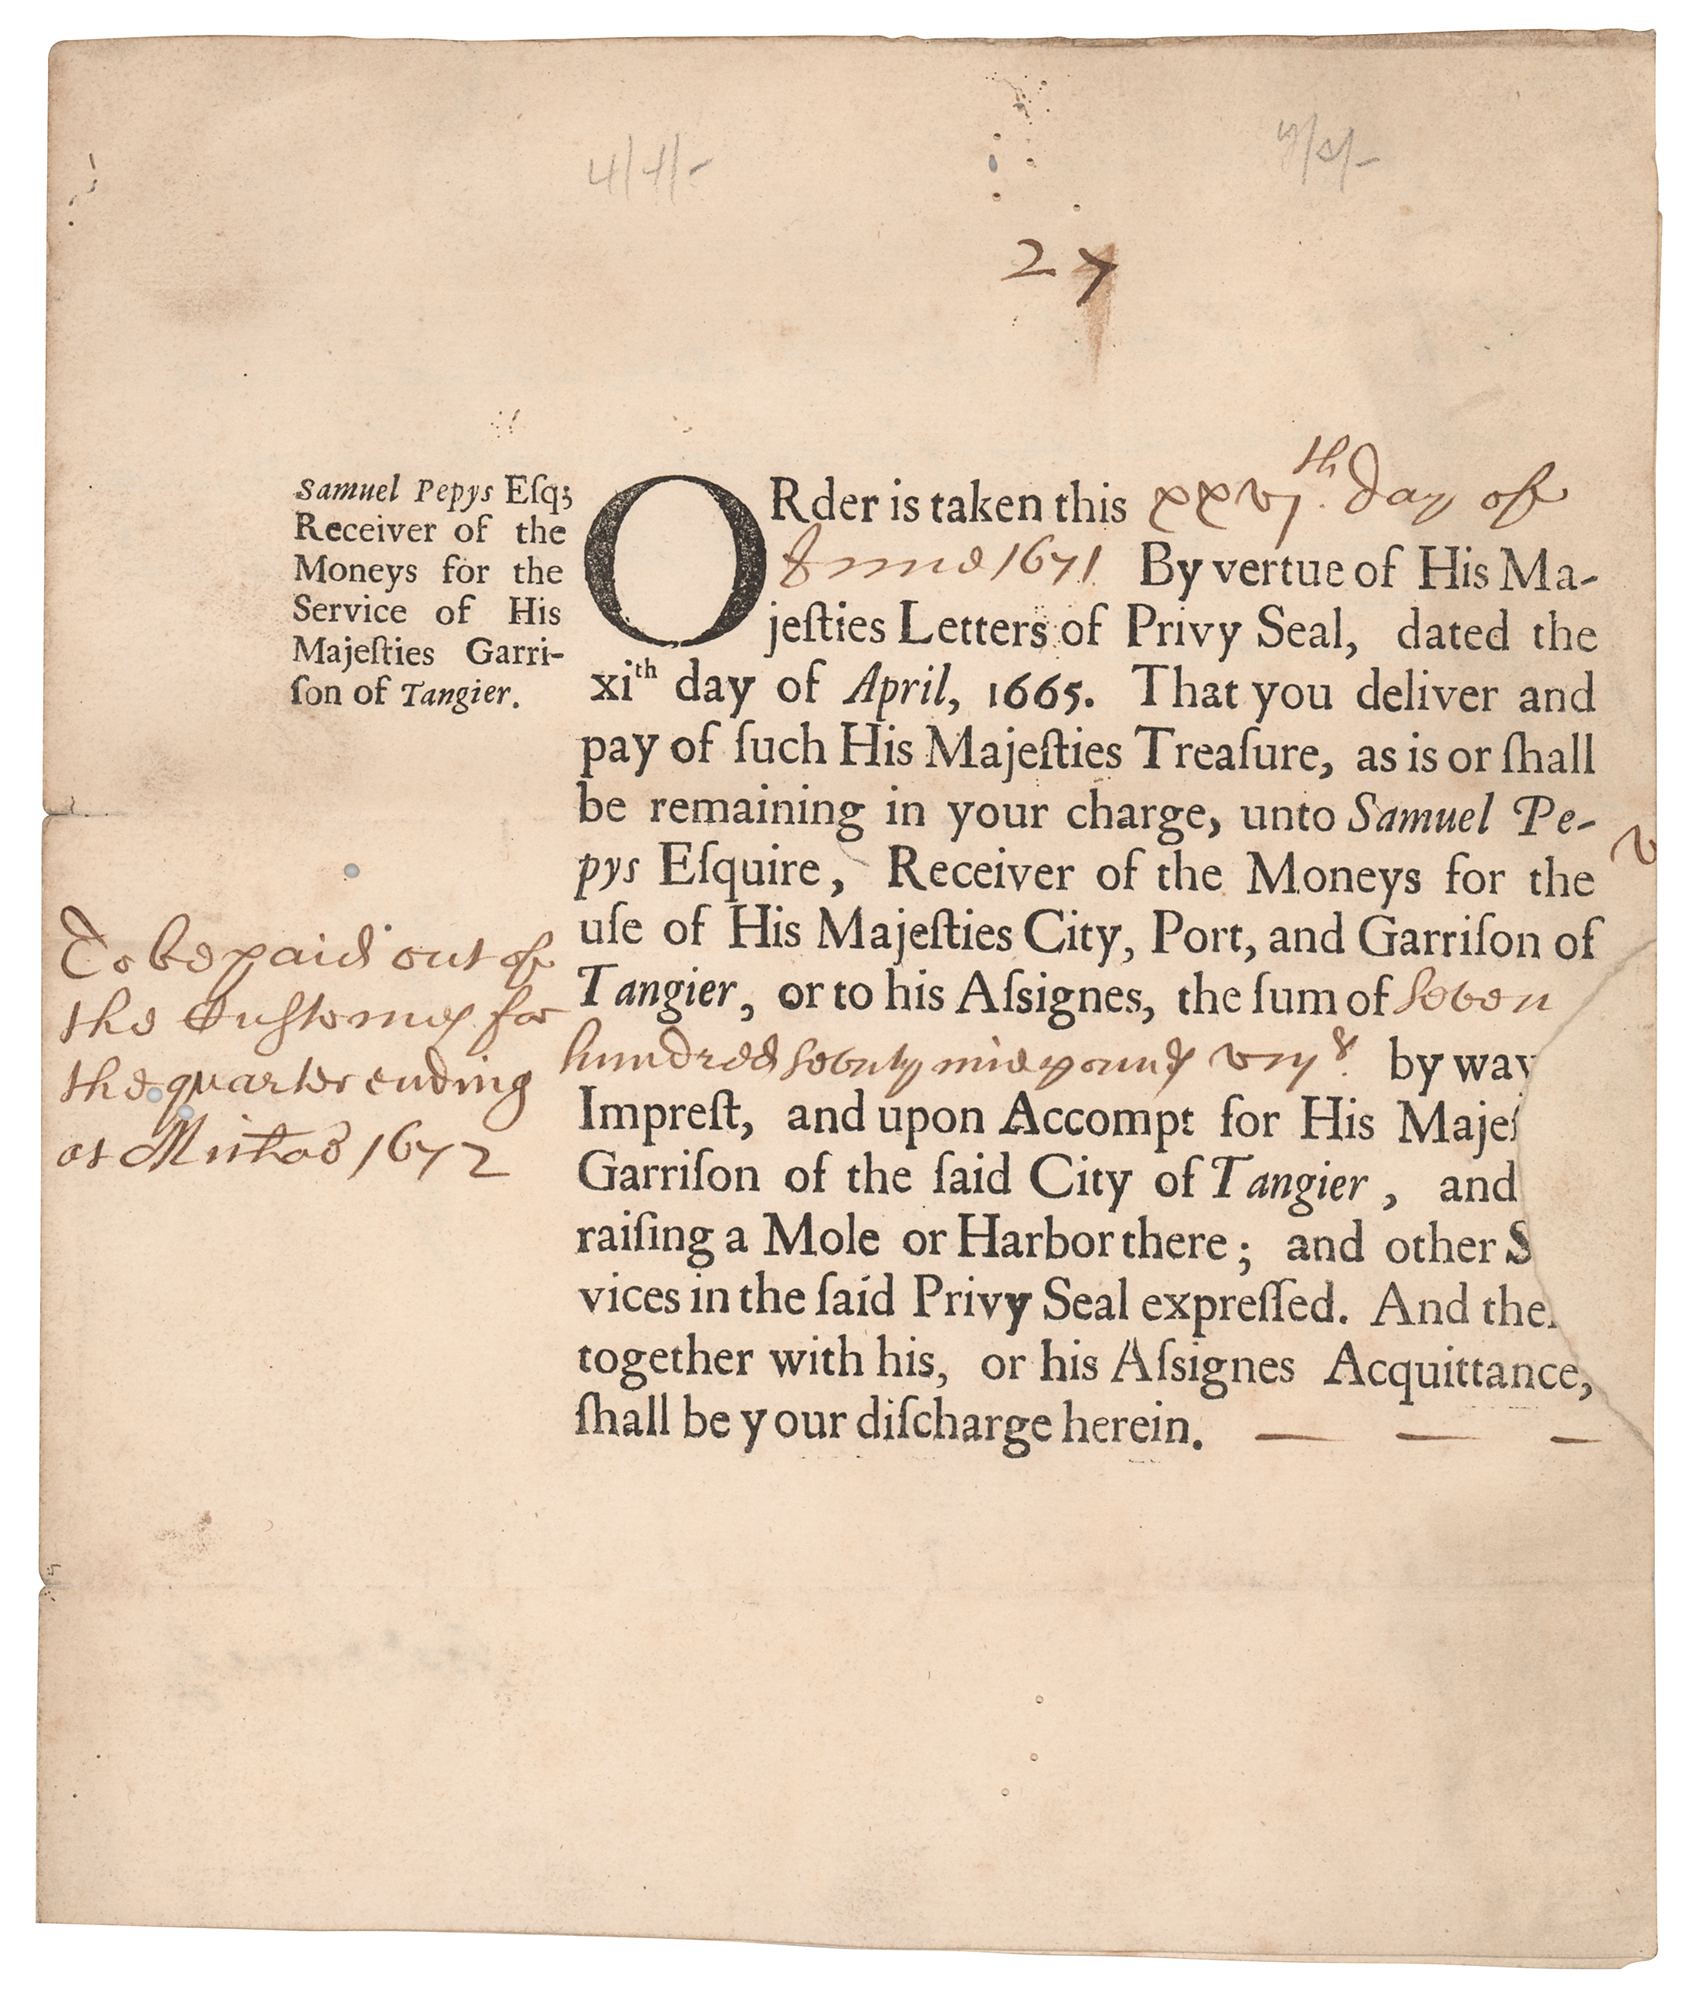 4/4/-
4/4/-
27
Samuel Pepys Eſq;
Receiver of the
Moneys for the
Service of His
Majeſties Garri-
ſon of Tangier.
ORder is taken this xxvjth. day of
June 1671 By vertue of His Ma-
jeſties Letters of Privy Seal, dated the
xith day of April, 1665. That you deliver and
pay of ſuch His Majeſties Treaſure, as is or ſhall
be remaining in your charge, unto Samuel Pe-
pys Eſquire, Receiver of the Moneys for the
uſe of His Majeſties City, Port, and Garriſon of
Tangier, or to his Aſsignes, the ſum of seven
hundred seventy nine pounds by way
Impreſt, and upon Accompt for His Majeſ
Garriſon of the ſaid City of Tangier, and
raiſing a Mole or Harbor there; and other S
vices in the ſaid Privy Seal expreſſed. And the
together with his, or his Aſsignes Acquittance,
ſhall be your diſcharge herein. — — —
To be paid out of
the Customes for
the quarter ending
at 1672